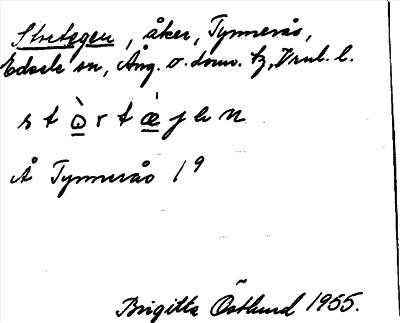 Stretegen, åker, Tynnerås,
Edsele sn, Ång. v. doms. tg,
s t ò̱ r t ǽ̱ j e n
Å Tynnerås 1⁹
Birgitta Östlund 1955.